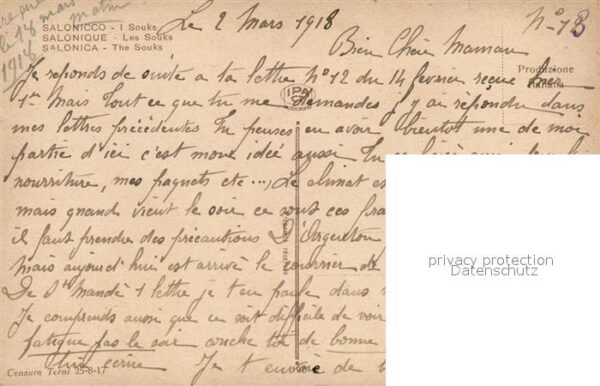 le 18 mai
1918
matin
SALONICCO - I Souks
SALONIQUE - Les Souks
SALONICA - The Souks
Le 2 Mars 1918
N° 13
Bien Chère Maman
Produzione
Italiana
Je reponds de suite a ta lettre N° 12 du 14 fevrier reçue hier
1er Mars Tout ce que tu me demandes j'y ai répondu dans
IPA
mes lettres précédentes Tu penses en avoir bientot une de moi
partie d'ici c'est mon idée aussi Tu
nourriture, mes paquets etc..., Le climat es
mais quand vient le soir ce sont ces
il faut prendre des précautions D'Orgereton
Mais aujourd'hui est arrivé le courrier de
De St Mandé 1 lettre je t'en parle dans
Je comprends aussi que ce soit difficile de voir
fatigue pas le soir couche toi de bonne
lui ecrire Je t'envoie de
Censura Terni 25-8-17
privacy protection
Datenschutz